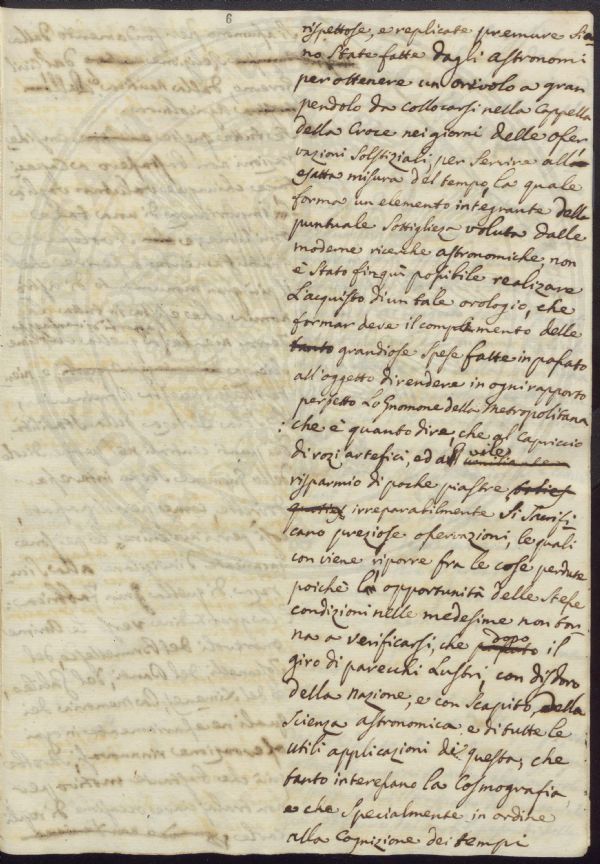 6
rispettose, e replicate premure sia=
no state fatte dagli astronomi
per ottenere un orivolo a gran
pendolo da collocarsi nella Cappella
della Croce nei giorni delle osser
vazioni solstiziali, per servire all'
esatta misura del tempo, la quale
forma un elemento integrante della
puntuale sottigliezza voluta dalle
moderne ricerche astronomiche, non
è stato finquì possibile realizare
l'acquisto di un tale orologio, che
formar deve il complemento delle
tanto grandiose spese fatte in passato
all'oggetto di rendere in ogni rapporto
perfetto lo Gnomone della Metropolitana
che è quanto dire, che al capriccio
di rozi artefici, ed al vile
risparmio di poche piastre
irreparabilmente si sacrifi
cano preziose osservazioni, le quali
conviene riporre fra le cose perdute
poichè l'opportunità delle stesse
condizioni nelle medesime non tor
na a verificarsi, che dopo il
giro di parecchi lustri, con disdoro
della nazione, e con scapito della
scienza astronomica e di tutte le
utili applicazioni di questa, che
tanto interessano la Cosmografia,
e che specialmente in ordine
alla Cognizione dei tempi